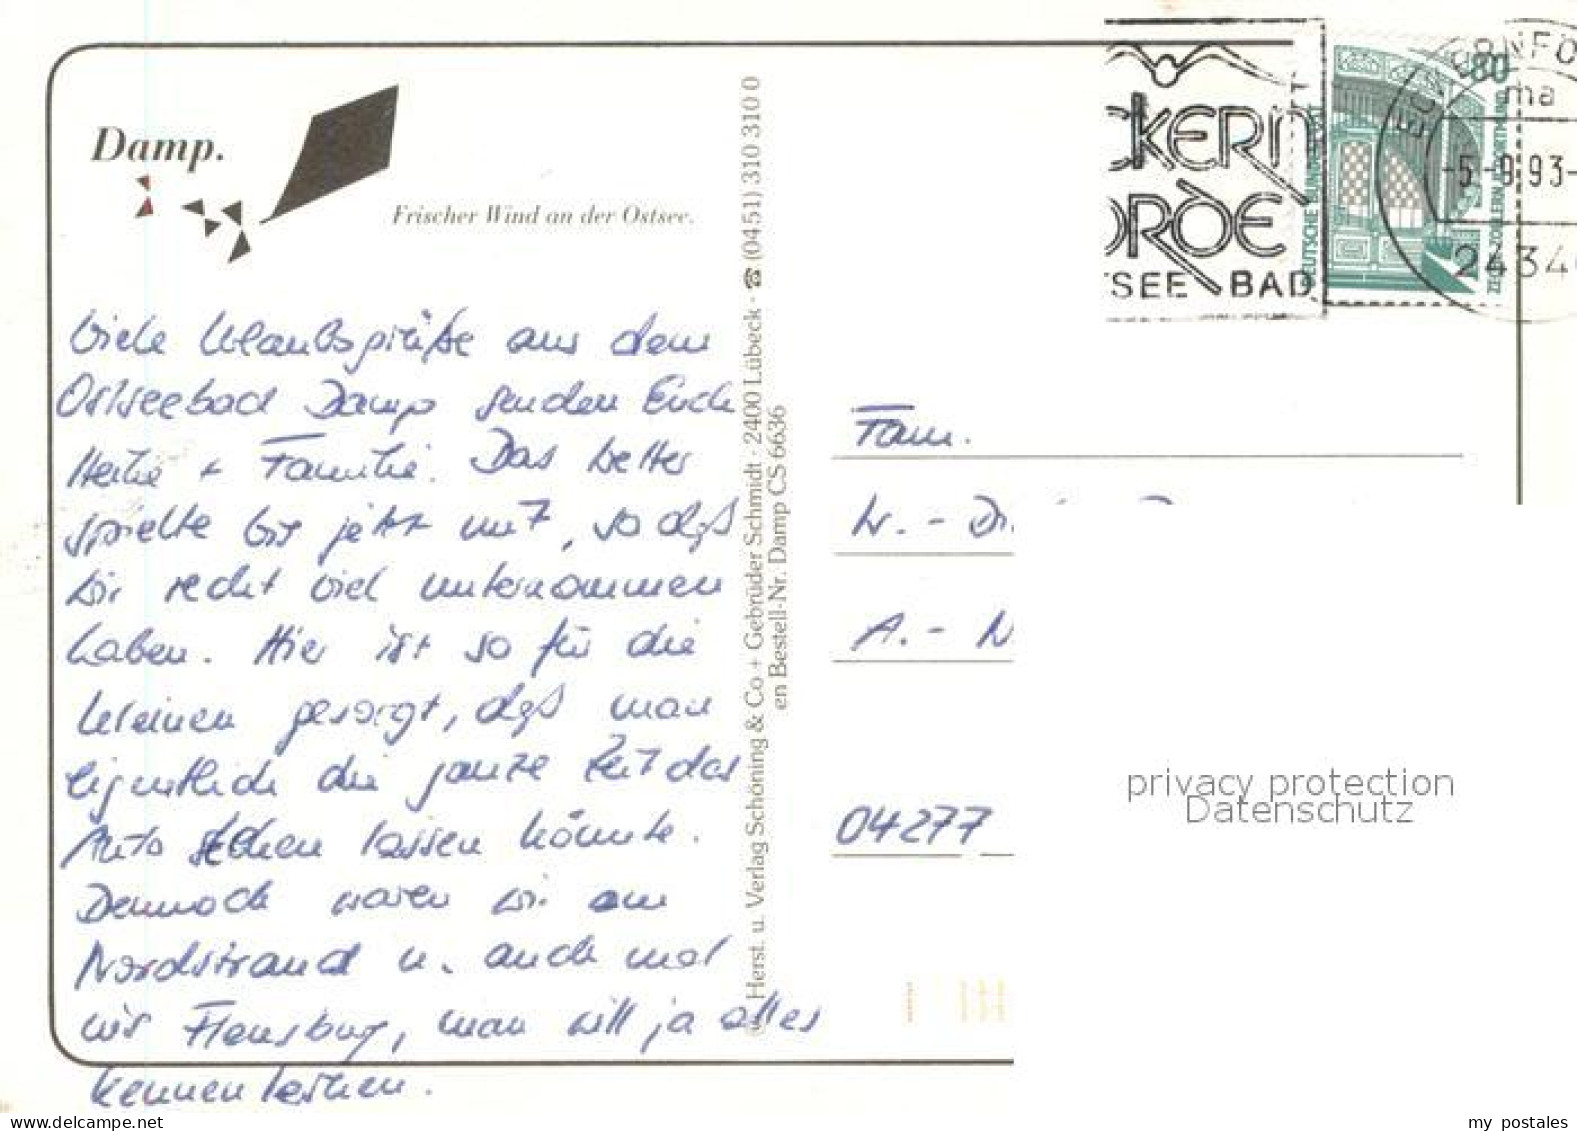 Damp.
Frischer Wind an der Ostsee.
Viele Urlaubsgrüße aus dem
Ostseebad Damp senden Euch
+ Familie. Das Wetter
spielte bis jetzt mit, so daß
wir recht viel unternommen
haben. Hier ist so für die
Kleinen gesorgt, daß man
eigentlich die ganze Zeit das
Auto stehen lassen könnte.
Dennoch waren wir am
Nordstrand u. auch mal
in Flensburg, man will ja alles
kennenlernen.
Herst. u. Verlag Schöning & Co + Gebrüder Schmidt · 2400 Lübeck · ☎ (0451) 310 310 0
en Bestell-Nr. Damp CS 6636
CKERN
ORDE
TSEE BAD
DEUTSCHE BUNDESPOST
80
ZECHE ZOLLERN II DORTMUND
ma
-5.-9.93-
2434
Fam.
W. - D
A. - N
04277
privacy protection
Datenschutz
my postales